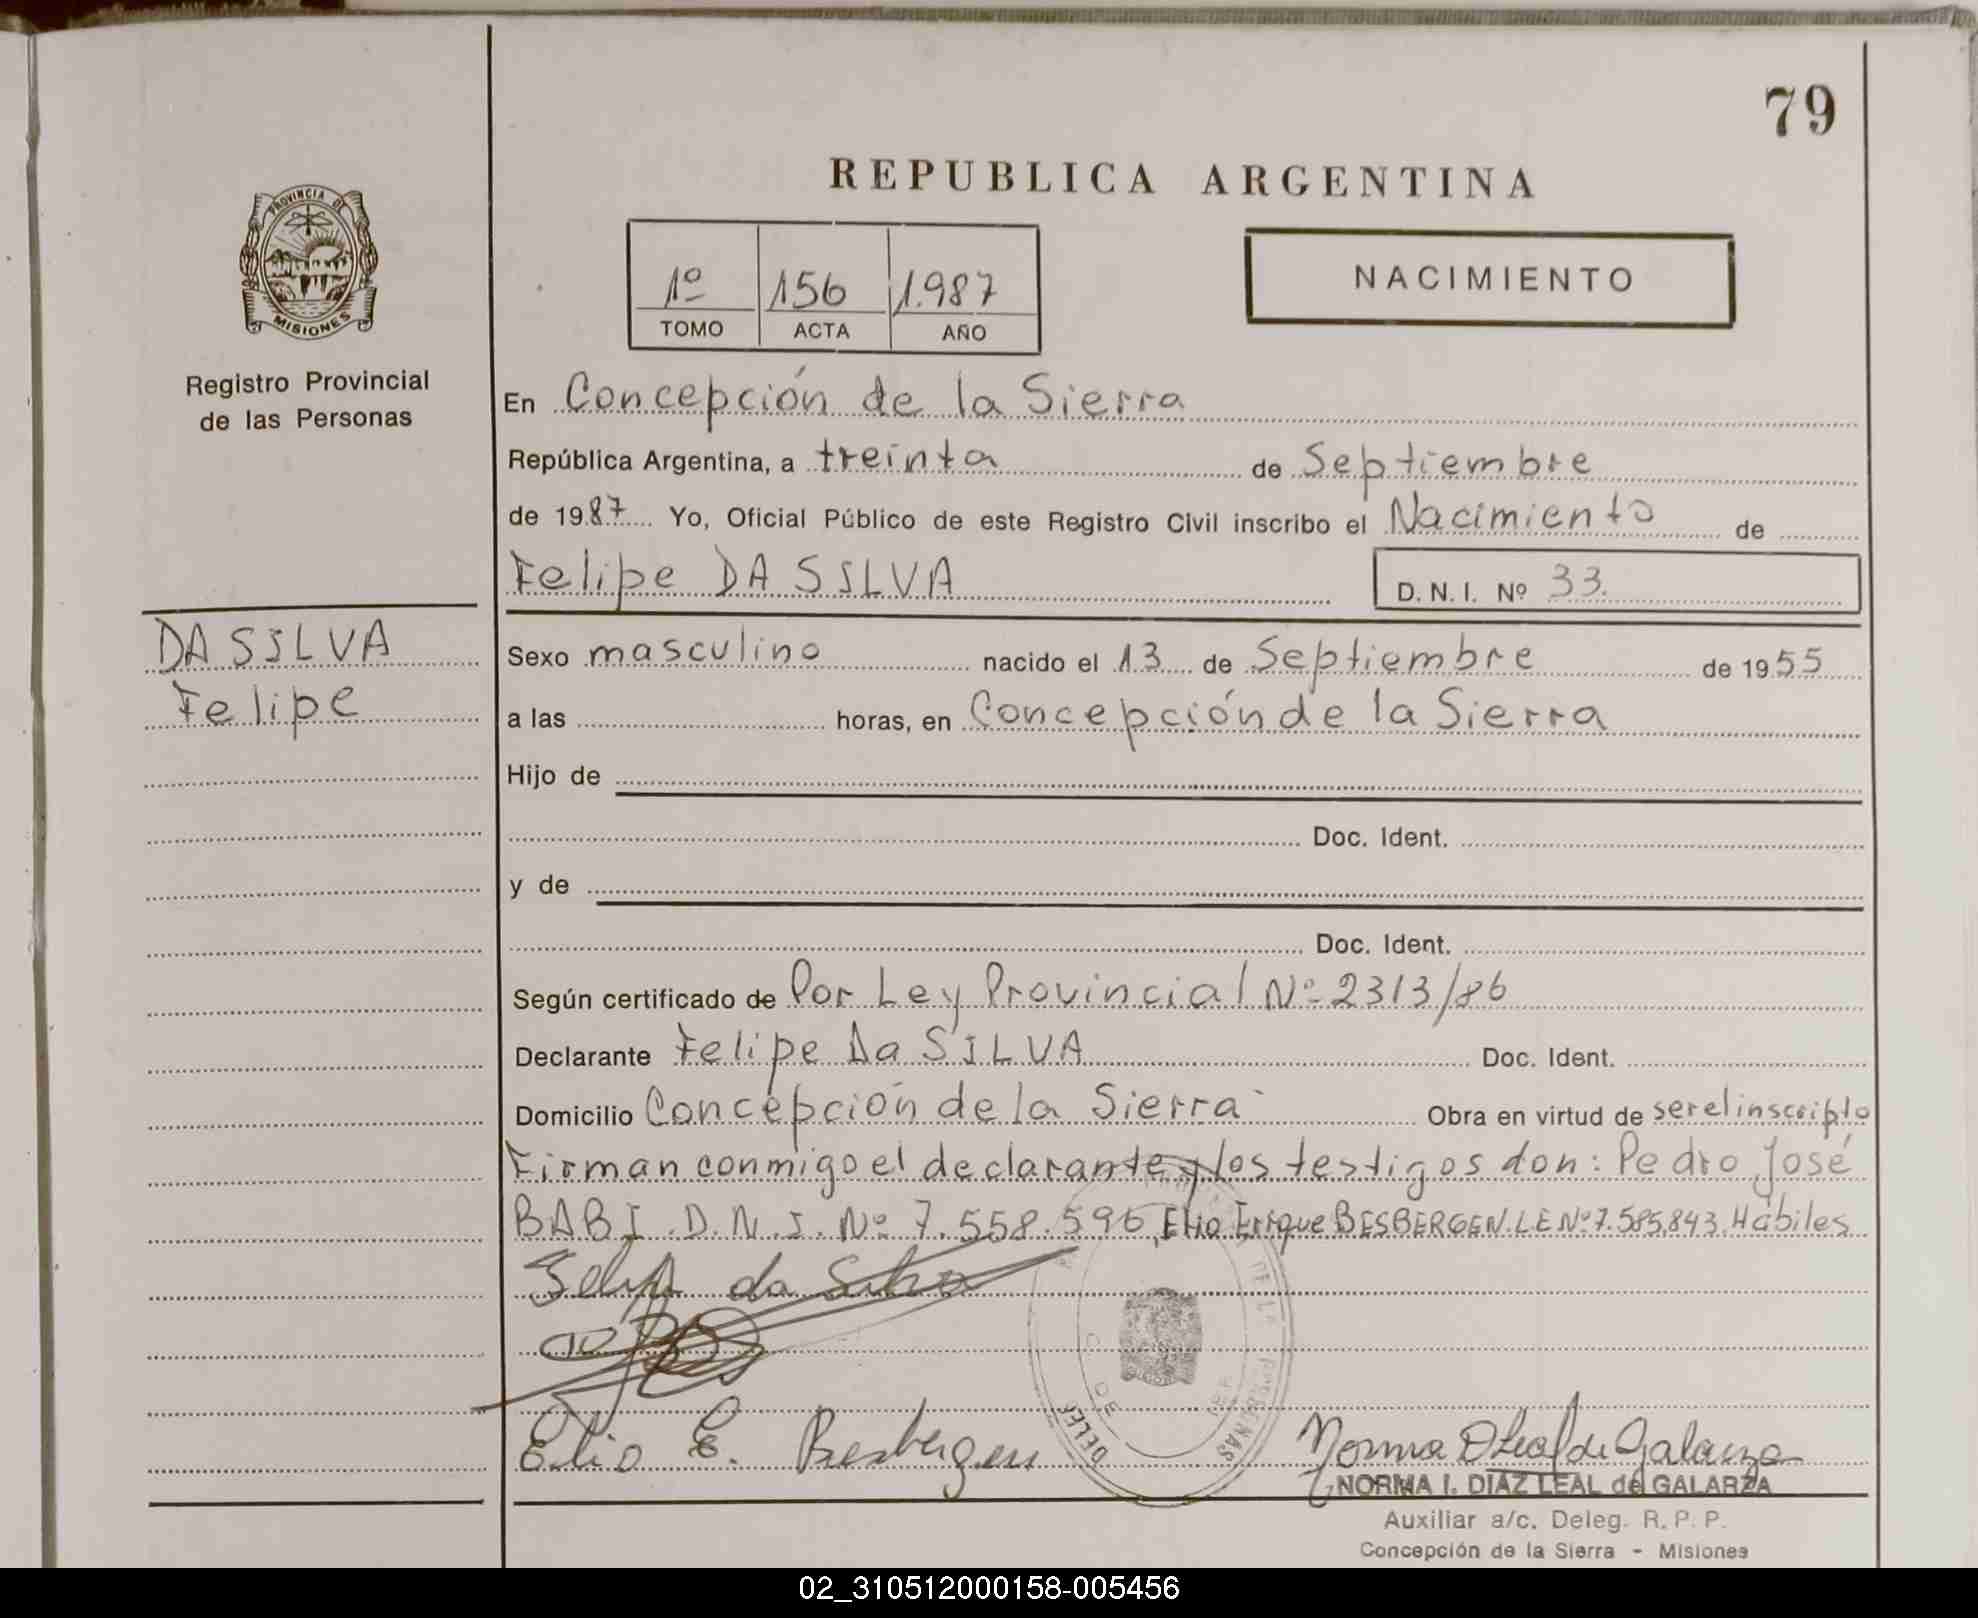 79
REPUBLICA ARGENTINA
PROVINCIA DE
MISIONES
1º 156 1.987
TOMO ACTA AÑO
NACIMIENTO
Registro Provincial
de las Personas
En Concepción de la Sierra
República Argentina, a treinta de Septiembre
de 1987 Yo, Oficial Público de este Registro Civil inscribo el Nacimiento de
Felipe DA SILVA D. N. I. Nº 33.
DA SILVA
Felipe
Sexo masculino nacido el 13 de Septiembre de 1955
a las horas, en Concepción de la Sierra
Hijo de
Doc. Ident.
y de
Doc. Ident.
Según certificado de Por Ley Provincial Nº 2313/86
Declarante Felipe Da SILVA Doc. Ident.
Domicilio Concepción de la Sierra Obra en virtud de ser el inscripto
Firman conmigo el declarante y los testigos don: Pedro José
BABI. D. N. I. Nº 7.558.596, Elio Erique BESBERGEN. L E Nº 7.585.843. Hábiles
Felipe da Silva
Elio E. Besbergen
Norma D Leal de Galarza
NORMA I. DIAZ LEAL de GALARZA
Auxiliar a/c. Deleg. R. P. P.
Concepción de la Sierra - Misiones
02_310512000158-005456